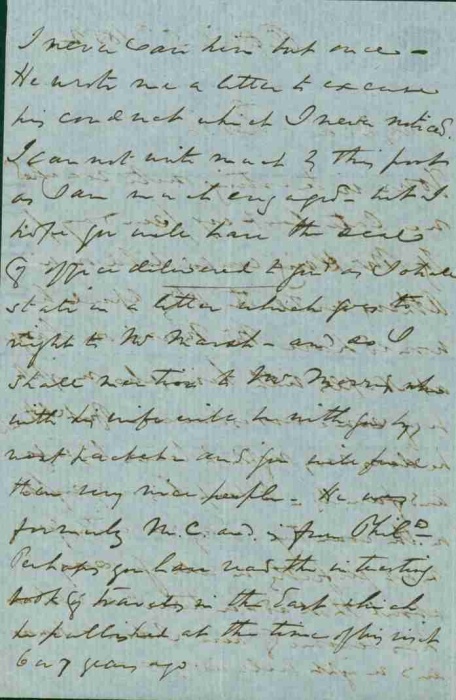 I never saw him but once -
He wrote me a letter to excuse
his conduct which I never noticed.
I can not write much by this post
as I am much engaged - but I
hope you will have the seal
of office delivered to you as I shall
state in a letter which goes to
night to Mr Marsh - and so I
shall mention to Mr Morris who
with his wife will be with you by
next packet - and you will find
them very nice people - He was
formerly M.C. and is from Phila
Perhaps you have read the interesting
book of travels in the East which
he published at the time of his visit
6 or 7 years ago